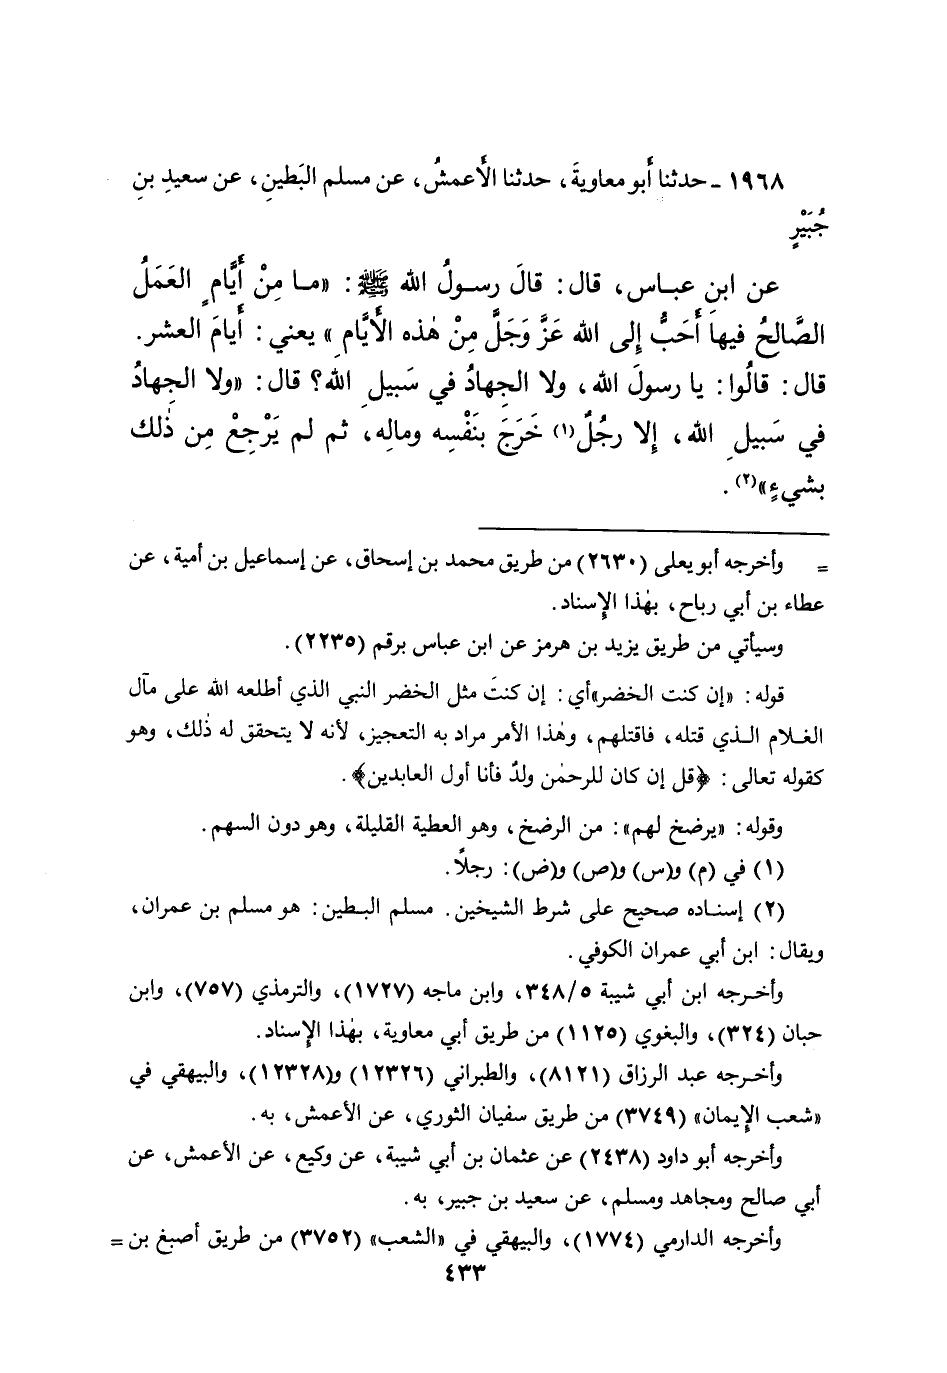 ١٩٦٨ - حدثنا أَبو معاويةَ، حدثنا الأَعمشُ، عن مسلم البَطينِ، عن سعيدِ بنِ
جُبَيْرٍ
عن ابنِ عباس، قال: قالَ رسولُ الله ﷺ: «ما مِنْ أَيَّامٍ العَمَلُ
الصَّالحُ فيها أَحَبُّ إلى الله عَزَّ وَجَلَّ مِنْ هٰذه الأَيَّامِ» يعني: أَيامَ العشر.
قال: قالُوا: يا رسولَ الله، ولا الجِهادُ في سَبيلِ الله؟ قال: «ولا الجِهادُ
في سَبيلِ الله، إلا رجُلٌ(١) خَرَجَ بنَفْسِه ومالِه، ثم لم يَرْجِعْ مِن ذٰلك
بشيءٍ»(٢).
= وأخرجه أبو يعلى (٢٦٣٠) من طريق محمد بن إسحاق، عن إسماعيل بن أمية، عن
عطاء بن أبي رباح، بهٰذا الإسناد.
وسيأتي من طريق يزيد بن هرمز عن ابن عباس برقم (٢٢٣٥).
قوله: «إن كنت الخضر» أي: إن كنتَ مثل الخضر النبي الذي أطلعه الله على مآل
الغلام الذي قتله، فاقتلهم، وهٰذا الأمر مراد به التعجيز، لأنه لا يتحقق له ذٰلك، وهو
كقوله تعالى: ﴿قل إن كان للرحمٰن ولدٌ فأنا أول العابدين﴾.
وقوله: «يرضخ لهم»: من الرضخ، وهو العطية القليلة، وهو دون السهم.
(١) في (م) و(س) و(ص) و(ض): رجلاً.
(٢) إسناده صحيح على شرط الشيخين. مسلم البطين: هو مسلم بن عمران،
ويقال: ابن أبي عمران الكوفي.
وأخرجه ابن أبي شيبة ٣٤٨/٥، وابن ماجه (١٧٢٧)، والترمذي (٧٥٧)، وابن
حبان (٣٢٤)، والبغوي (١١٢٥) من طريق أبي معاوية، بهٰذا الإسناد.
وأخرجه عبد الرزاق (٨١٢١)، والطبراني (١٢٣٢٦) و(١٢٣٢٨)، والبيهقي في
«شعب الإيمان» (٣٧٤٩) من طريق سفيان الثوري، عن الأعمش، به.
وأخرجه أبو داود (٢٤٣٨) عن عثمان بن أبي شيبة، عن وكيع، عن الأعمش، عن
أبي صالح ومجاهد ومسلم، عن سعيد بن جبير، به.
وأخرجه الدارمي (١٧٧٤)، والبيهقي في «الشعب» (٣٧٥٢) من طريق أصبغ بن =
٤٣٣